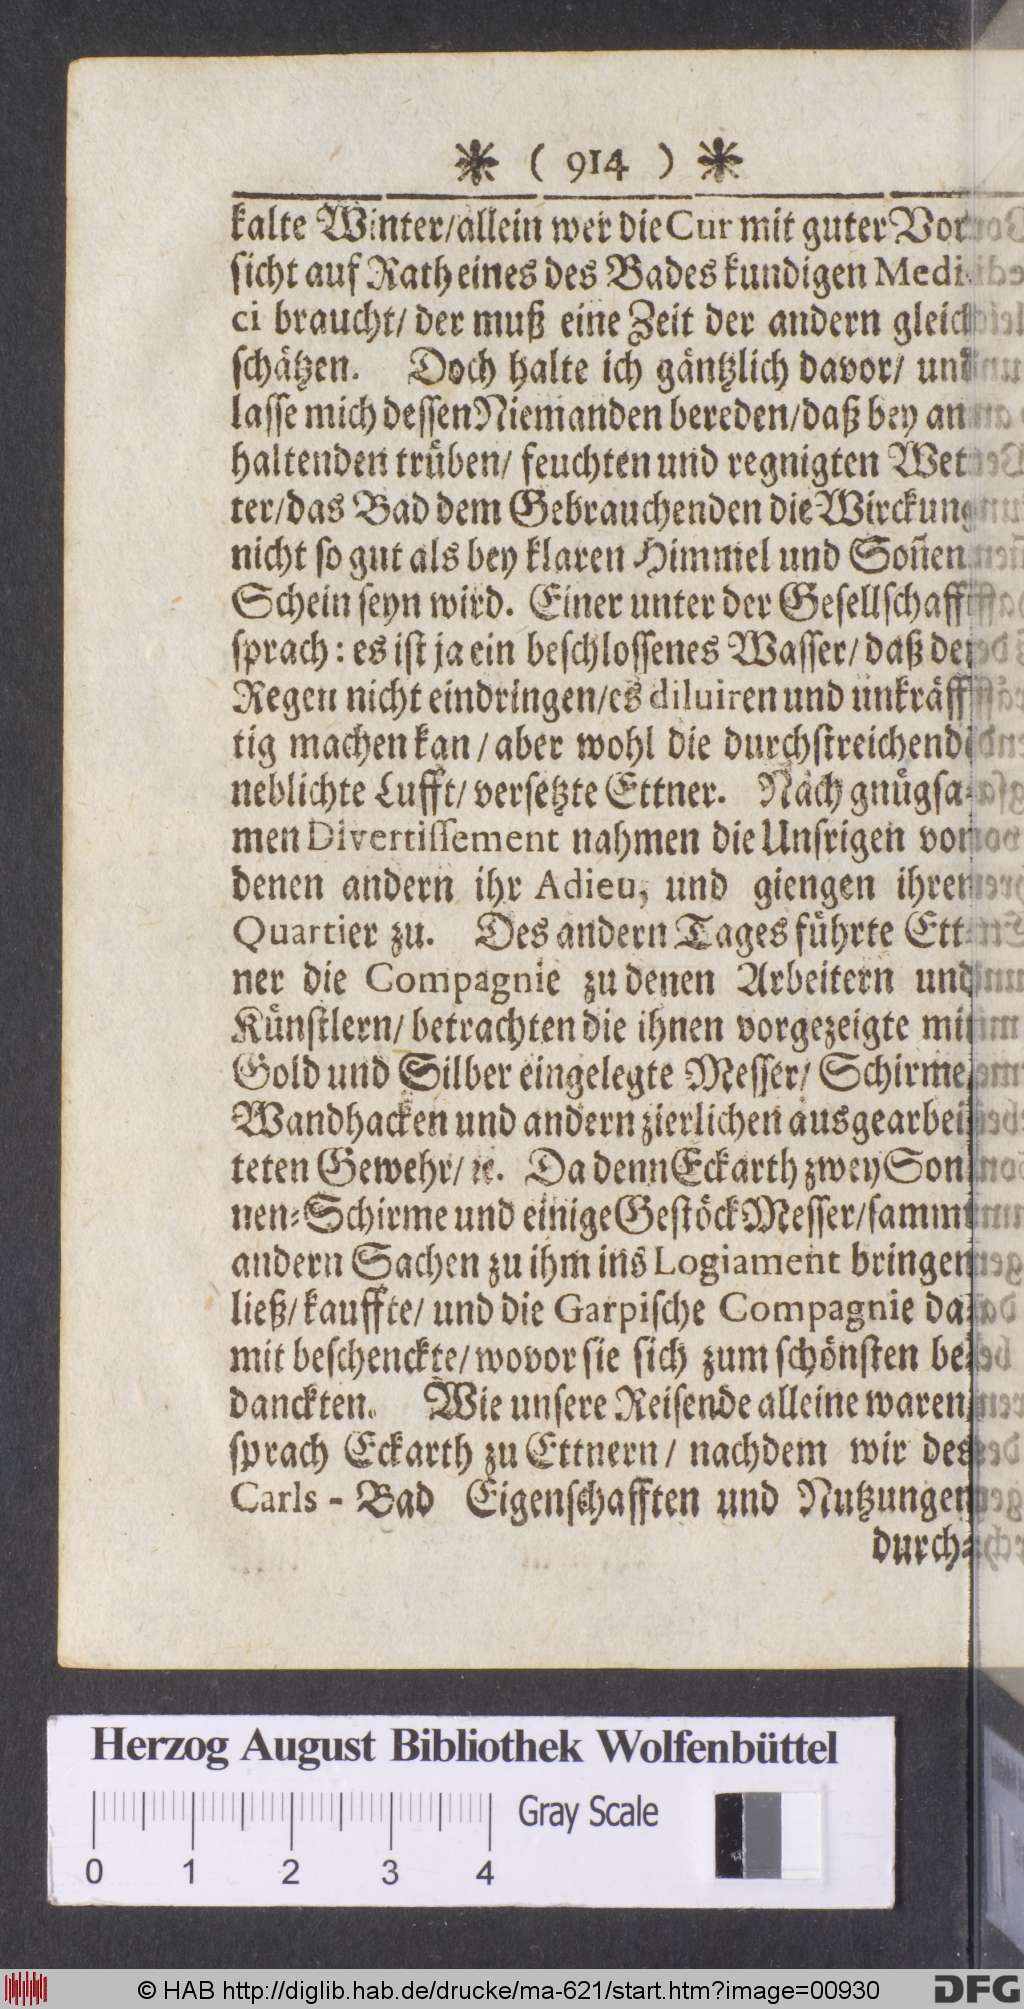 * ( 914 ) *
kalte Winter/allein wer die Cur mit guter Vor-
sicht auf Rath eines des Bades kundigen Medi-
ci braucht/ der muß eine Zeit der andern gleich
schätzen. Doch halte ich gäntzlich davor/ und
lasse mich dessen Niemanden bereden/daß bey an-
haltenden trüben/ feuchten und regnigten Wet-
ter/das Bad dem Gebrauchenden die Wirckung
nicht so gut als bey klaren Himmel und Soñen
Schein seyn wird. Einer unter der Gesellschafft
sprach: es ist ja ein beschlossenes Wasser/ daß der
Regen nicht eindringen/es diluiren und unkräff-
tig machen kan / aber wohl die durchstreichende
neblichte Lufft/ versetzte Ettner. Nach gnügsa-
men Divertissement nahmen die Unsrigen von
denen andern ihr Adieu, und giengen ihrem
Quartier zu. Des andern Tages führte Ett-
ner die Compagnie zu denen Arbeitern und
Künstlern/ betrachten die ihnen vorgezeigte mit
Gold und Silber eingelegte Messer/ Schirme,
Wandhacken und andern zierlichen ausgearbei-
teten Gewehr/ ꝛc. Da denn Eckarth zwey Son-
nen-Schirme und einige Gestöck-Messer/sammt
andern Sachen zu ihm ins Logiament bringen
ließ/ kauffte/ und die Garpische Compagnie da-
mit beschenckte/ wovor sie sich zum schönsten be-
danckten. Wie unsere Reisende alleine waren,
sprach Eckarth zu Ettnern/ nachdem wir des
Carls - Bad Eigenschafften und Nutzungen
durch-
Herzog August Bibliothek Wolfenbüttel
Gray Scale
0 1 2 3 4
© HAB http://diglib.hab.de/drucke/ma-621/start.htm?image=00930
DFG